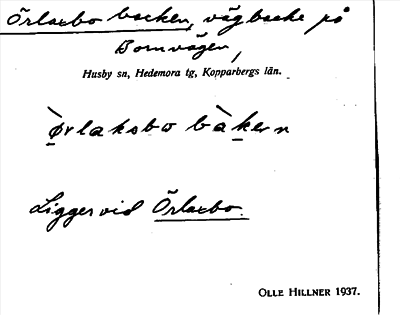 Örlaxbo backen, vägbacke på
Bornvägen,
Husby sn, Hedemora tg, Kopparbergs län.
̀ørlaksbo bàkern
Ligger vid Örlaxbo.
OLLE HILLNER 1937.